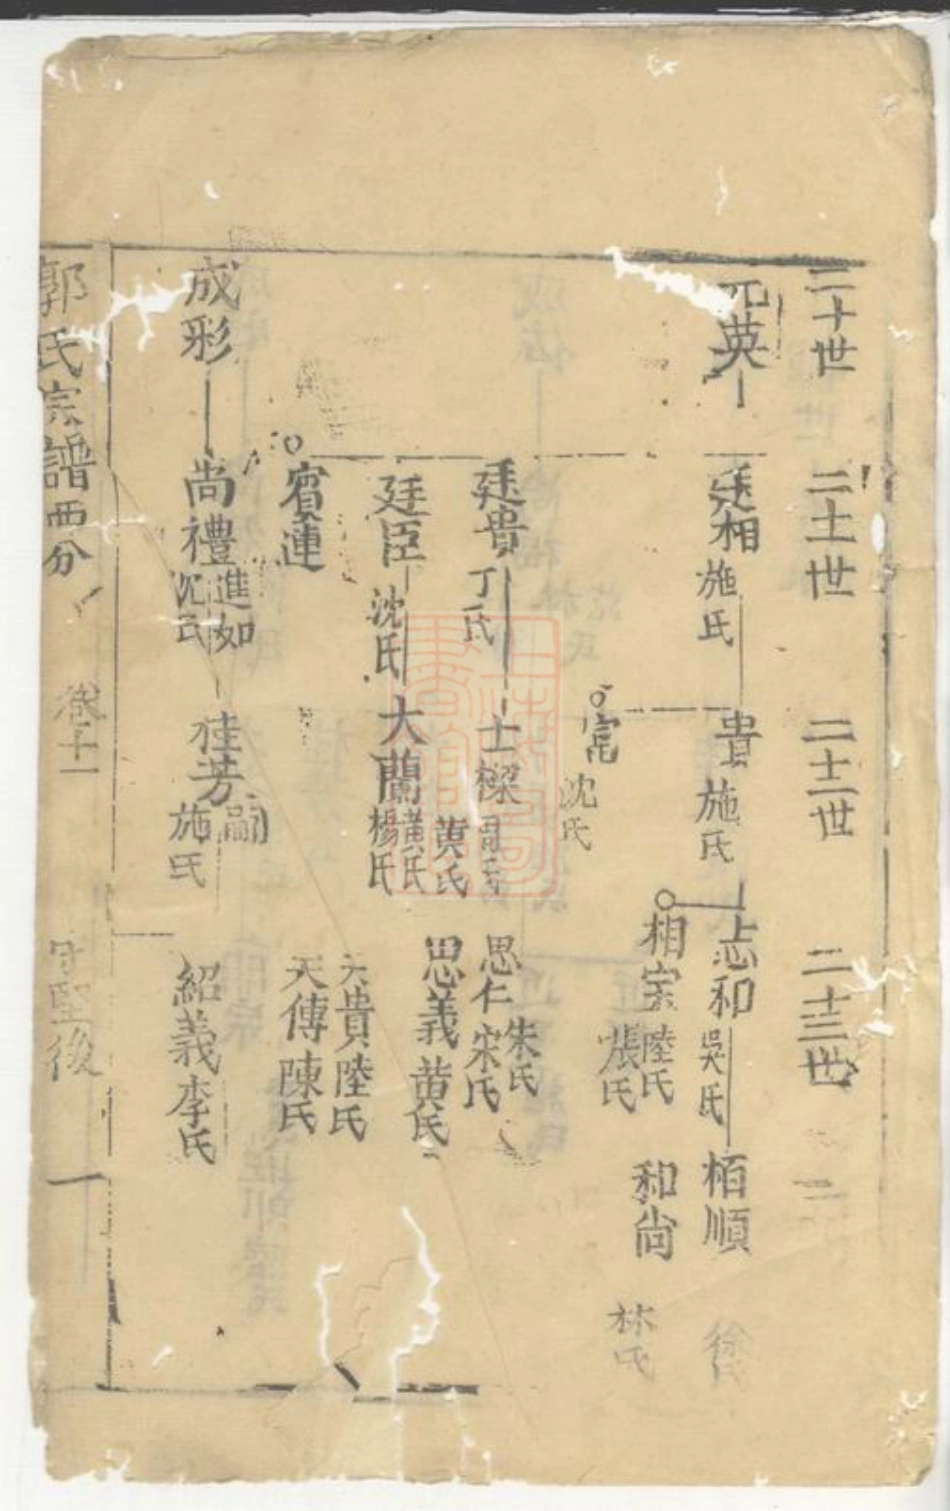 二十世
二十一世
二十二世
二十三世
二
元英
廷相
施氏
貴
施氏
志和
吳氏
栢順
徐氏
相宗
陸氏
張氏
和尚
林氏
沈氏
廷貴
丁氏
士樑
周氏
黃氏
思仁
朱氏
宋氏
廷臣
沈氏
大蘭
黃氏
楊氏
思義
黃氏
天貴
陸氏
天傳
陳氏
賓蓮
成形
尚禮
進如
沈氏
桂芳
嗣
施氏
紹義
李氏
郭氏宗譜西分
卷十一
後
一